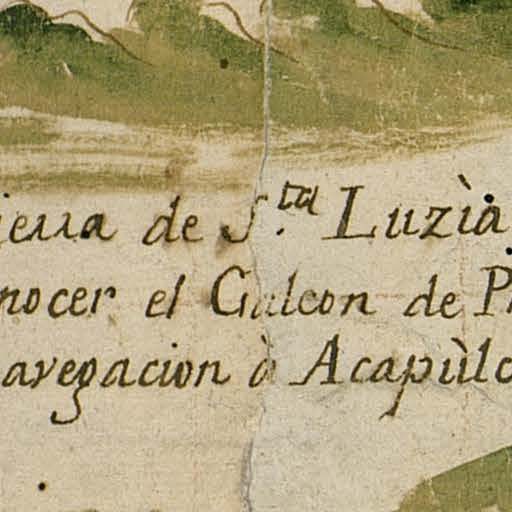 ieua de S.ta Luzìa
nocer el Galeon de P
avegacion à Acapùlc